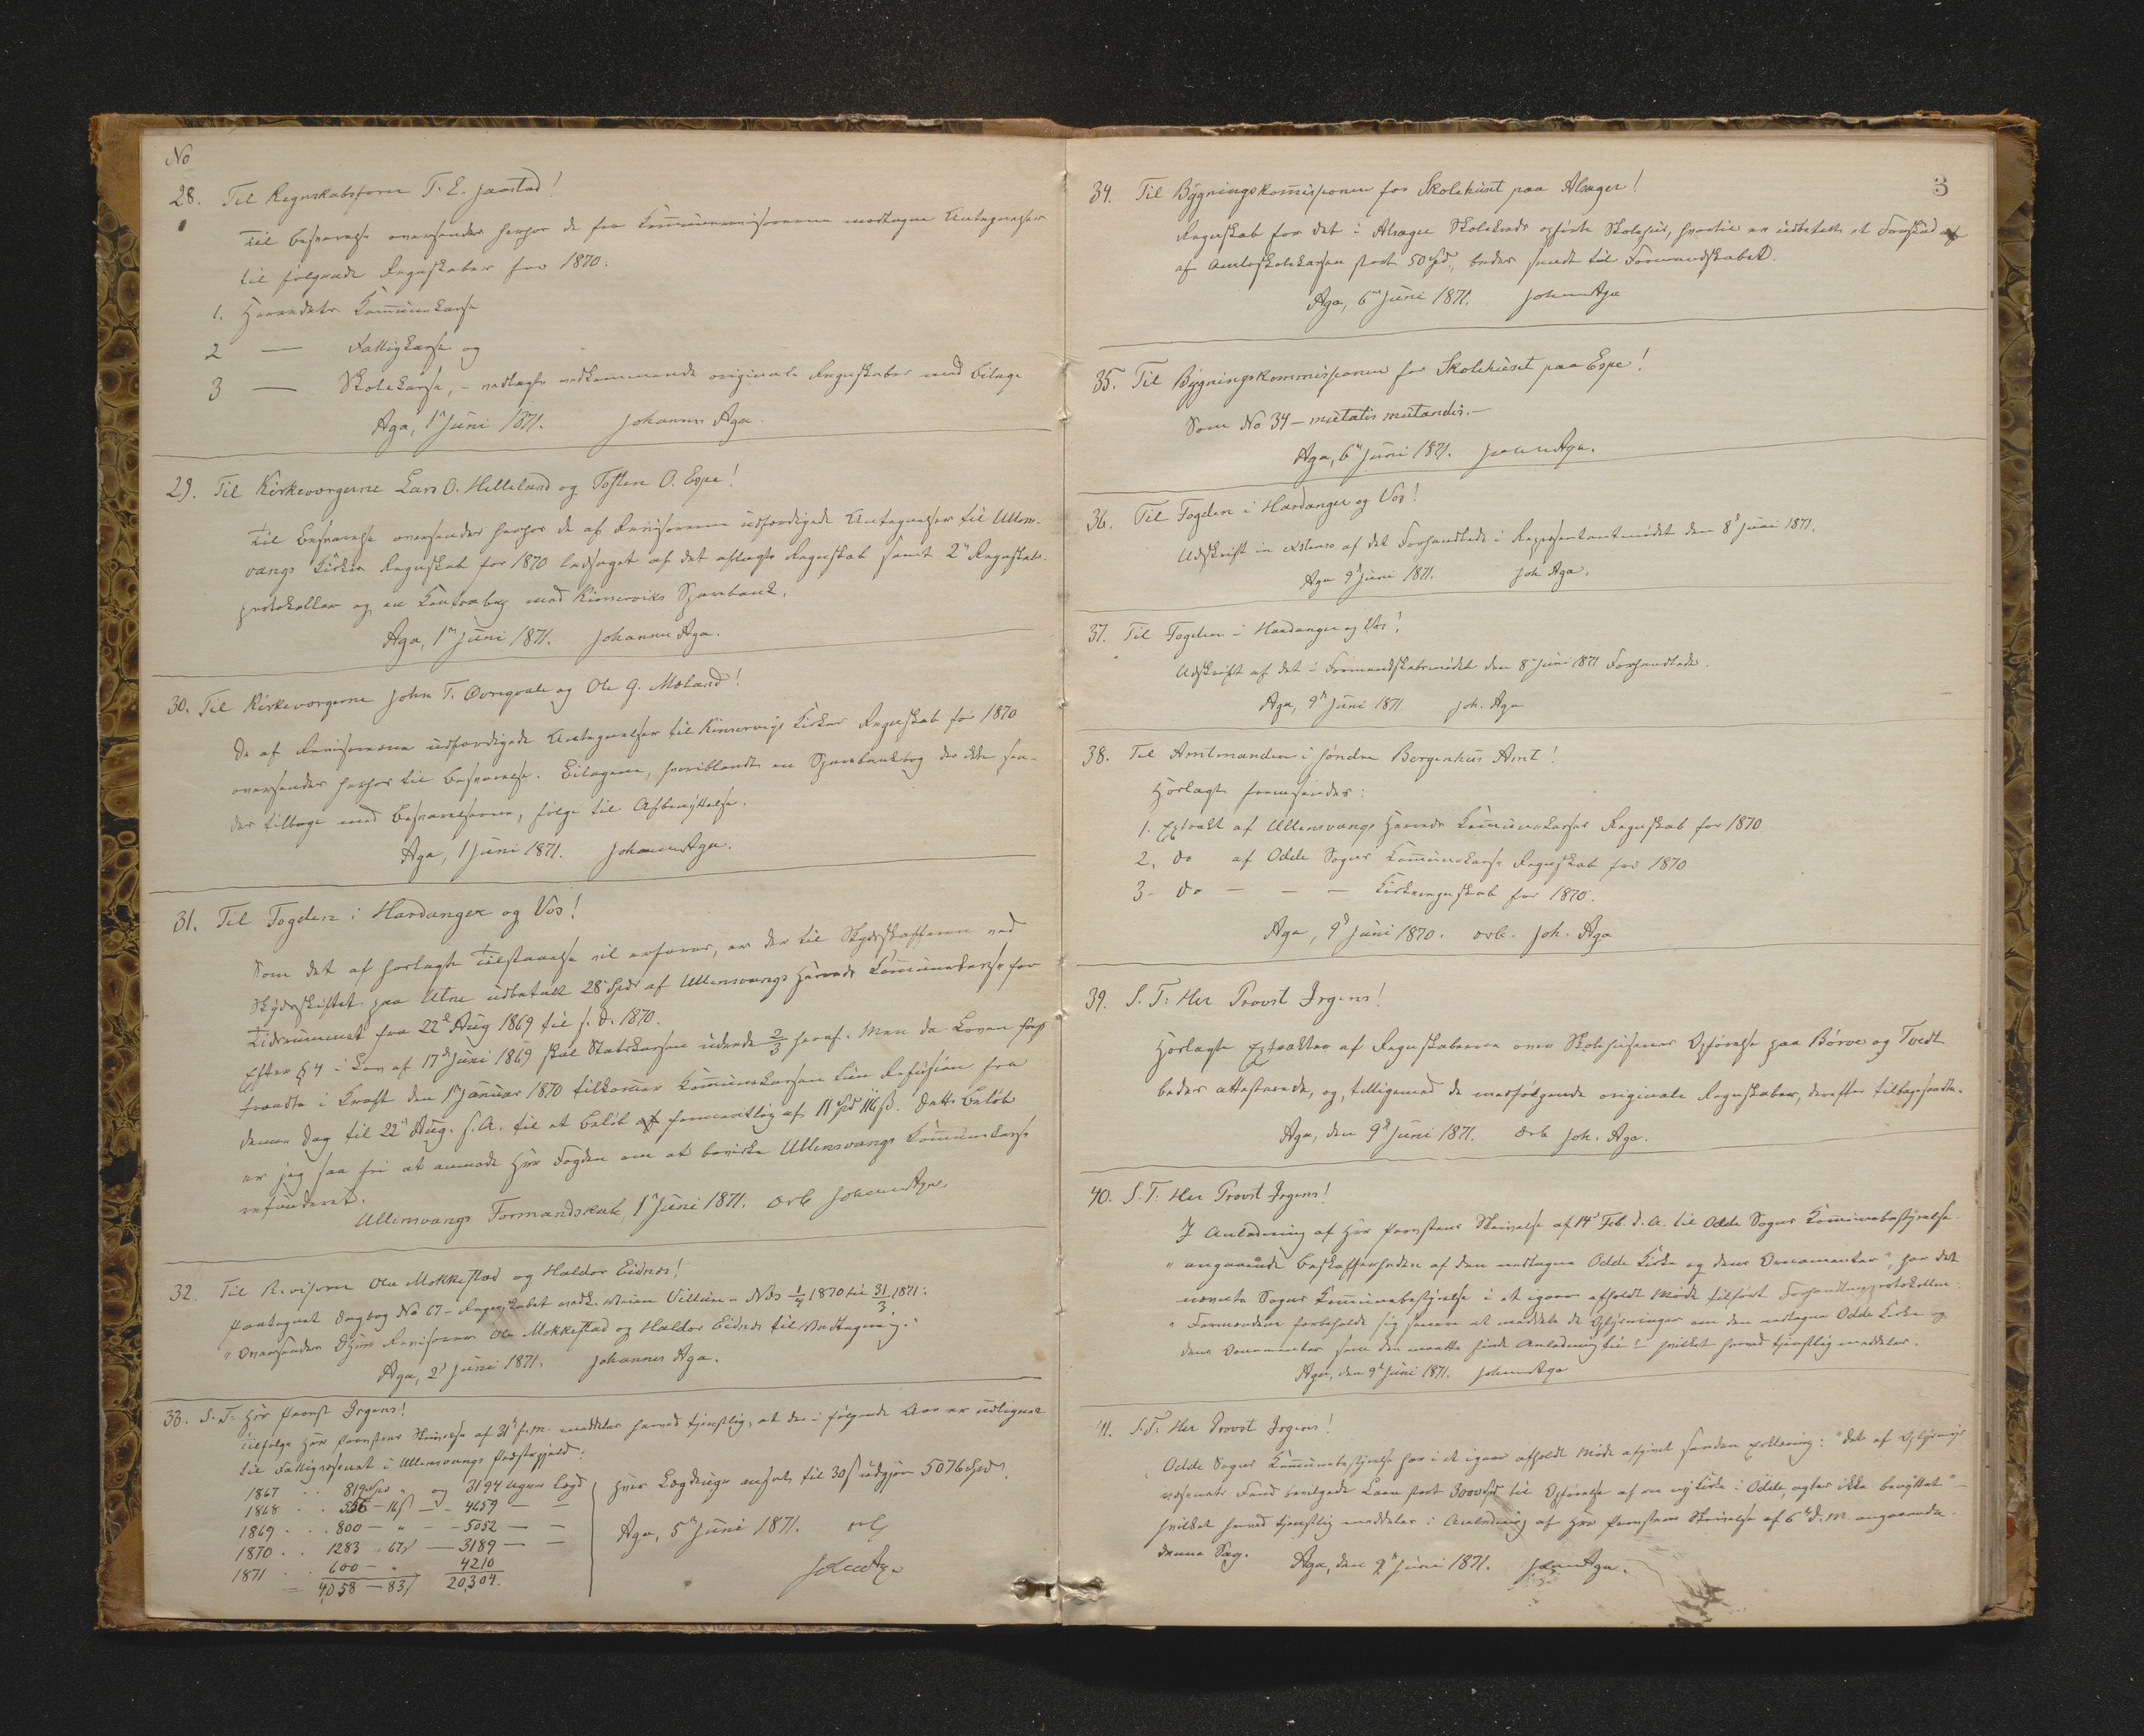 No
28. Til Regnskabsfører T. E. Jaastad!
Til Besvarelse oversendes herhos de fra Kommunerevisorerne modtagne Antegnelser
til følgende Regnskaber for 1870:
1. Herredets Kommunekasse
2 — Fattigkasse og
3 — Skolekasse, – vedlagte vedkommende originale Regnskaber med Bilage
Aga, 1ste Juni 1871. Johannes Aga.
29. Til Kirkeværgerne Lars O. Helleland og Tosten O. Espe!
Til Besvarelse oversendes herhos de af Revisorerne udfærdigede Antegnelser til Ullens-
vangs Kirkes Regnskab for 1870 ledsaget af det aflagte Regnskab samt 2de Regnskabs-
protokoller og en Contrabog med Kinserviks Sparebank.
Aga, 1ste Juni 1871. Johannes Aga.
30. Til Kirkeværgerne John T. Qvestad og Ole G. Mæland!
De af Revisorerne udfærdigede Antegnelser til Kinservigs Kirkes Regnskab for 1870
oversendes herhos til Besvarelse. Bilagene, hvoriblandt en Sparebankbog der ikke sen-
des tilbage med Besvarelserne, følge til Afbenyttelse.
Aga, 1 Juni 1871. Johannes Aga.
31. Til Fogden i Hardanger og Vos!
Som det af hoslagte Tilstaaelse vil erfares, er der til Skydsskafferen ved
Skydsskiftet paa Utne udbetalt 28 Spd af Ullensvangs Herreds Kommunekasse for
Tidsrummet fra 22de Aug 1869 til s. D. 1870.
Efter § 4 i Lov af 17de Juni 1869 skal Statskassen udrede 2/3 heraf. Men da Loven først
traadte i Kraft den 1ste Januar 1870 tilkommer Kommunekassen kun Refusion fra
denne Dag til 22de Aug. s. A. til et Beløb formentlig af 11 Spd 116 ß. Dette Beløb
er jeg saa fri at anmode Hrr Fogden om at bevirke Ullensvangs Kommunekasse
refunderet.
Ullensvangs Formandskab, 1ste Juni 1871. ærb Johannes Aga.
32. Til Revisorer Ole Mokkestad og Haldor Eidnes!
Paategnet Dagbog No 67 – Regnskabet vedk. Veien – Næs 1/4 1870 til 31/3 1871:
"Oversendes DHrr Revisorer Ole Mokkestad og Haldor Eidnes til Antegning."
Aga, 2den Juni 1871. Johannes Aga.
33. S. T. Hrr Provst Irgens!
Tilfølge Hrr Provstens Skrivelse af 31te f. M. meddeles herved tjenstlig, at der i følgende Aar er udlignet
til Fattigvæsenet i Ullensvangs Præstegjeld:
1867 . . 819 Spd " og 3194 Ugers Lægd
1868 . . 556 – 16 ß – 4659 — —
1869 . . . 800 — " — 5052 — —
1870 . . 1283 . 67 ß — 3189 — —
1871 . . 600 — " 4210
= 4,058 — 83 ß 20,304.
Hver Lægduge ansat til 30 ß udgjør 5076 Spd.
Aga, 5te Juni 1871. ærb
Joh. Aga.
3
34. Til Bygningskommissionen for Skolehuset paa Alsager!
Regnskab for det i Alsager Skolekreds opførte Skolehus, hvortil er udbetalt et Forskud
af Amtsskolekassen stort 50 Spd, bedes sendt til Formandskabet.
Aga, 6te Juni 1871. Johannes Aga
35. Til Bygningskommissionen for Skolehuset paa Espe!
Som No 34 – mutatis mutandis. –
Aga, 6te Juni 1871. Johannes Aga.
36. Til Fogden i Hardanger og Vos!
Udskrift in extenso af det Forhandlede i Repræsentantmødet den 8de Juni 1871.
Aga 9de Juni 1871. Joh Aga.
37. Til Fogden i Hardanger og Vos!
Udskrift af det i Formandskabsmødet den 8de Juni 1871 Forhandlede.
Aga, 9de Juni 1871. Joh. Aga
38. Til Amtmanden i Søndre Bergenhus Amt!
Hoslagt fremsendes:
1. Extrakt af Ullensvangs Herreds Kommunekasses Regnskab for 1870.
2. do af Odde Sogns Kommunekasse Regnskab for 1870
3 - do — — — Kirkeregnskab for 1870.
Aga, 9de Juni 1870. ærb. Joh. Aga
39. S. T: Her Provst Irgens!
Hoslagte Extrakter af Regnskaberne over Skolehusenes Opførelse paa Børve og Tvedt
bedes attesterede, og, tilligemed de medfølgende originale Regnskaber, derefter tilbagesendte.
Aga, den 9de Juni 1871. Ærb Joh. Aga.
40. S. T: Her Provst Irgens!
I Anledning af Hrr Provstens Skrivelse af 14de Feb. d. A. til Odde Sogns Kommunebestyrelse
"angaaende Beskaffenheden af den nedtagne Odde Kirke og dens Ornamenter", har det
nævnte Sogns Kommunebestyrelse i et igaar afholdt Møde tilført Forhandlingsprotokollen:
"Formanden forbeholdt sig senere at meddele de Oplysninger om den nedtagne Odde Kirke og
dens Ornamenter som den maatte finde Anledning til" – hvilket herved tjenstlig meddeles.
Aga, den 9de Juni 1871. Johannes Aga
41. S. T: Her Provst Irgens!
Odde Sogns Kommunebestyrelse har i et igaar afholdt Møde afgivet saadan Erklæring: "Det af Oplysnings-
væsenets Fond bevilgede Laan stort 3000 Spd til Opførelse af en ny Kirke i Odde, agtes ikke benyttet" –
hvilket herved tjenstlig meddeles i Anledning af Hrr Provstens Skrivelse af 6te d. M. angaaende
denne Sag.
Aga, den 9de Juni 1871. Johannes Aga.